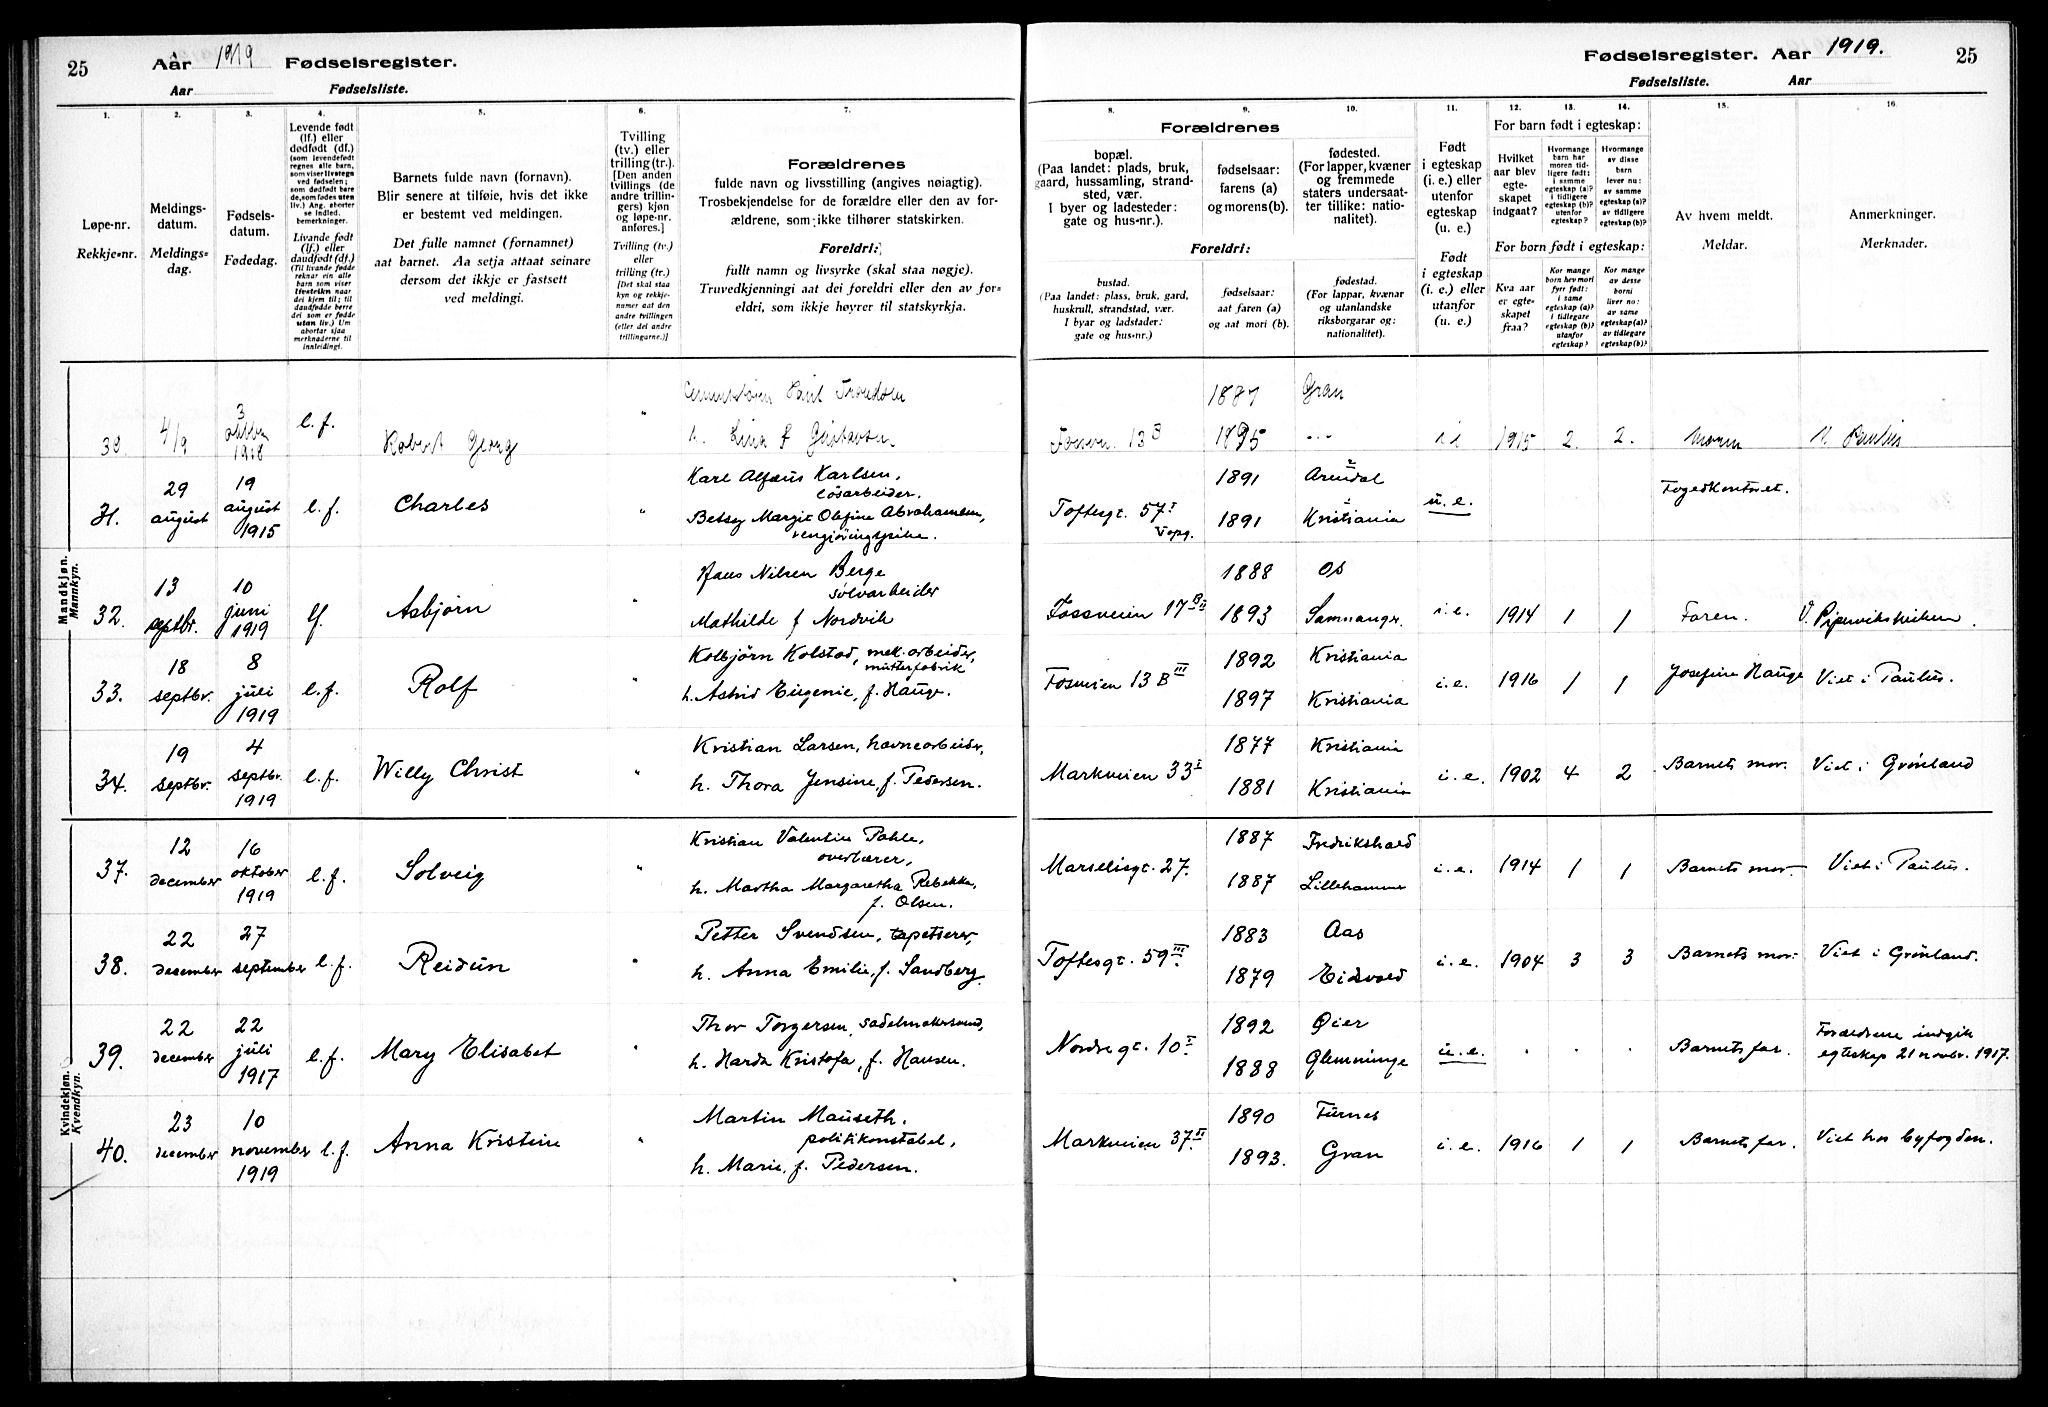 25 Aar 1919 Fødselsregister.
Aar Fødselsliste.
Fødselsregister. Aar 1919. 25
Fødselsliste. Aar
1. 2. 3. 4. 5. 6. 7.
Løpe-nr.
Rekkje-nr.
Meldings-
datum.
Meldings-
dag.
Fødsels-
datum.
Fødedag.
Levende født
(lf.) eller
dødfødt (df.)
(som levendefødt
regnes alle barn,
som viser livstegn
ved fødselen;
som dødfødt bare
de, som fødes uten
liv.) Ang. aborter
se indled.
bemerkninger.
Livande født
(lf.) eller
daudfødt (df.)
(Til livande fødde
reknar ein alle
barn som viser
livsteikn naar
dei kjem til; til
daudfødde berre
dei som er fødde
utan liv.) Um
abortar sjaa
merknaderne til
innleidingi.
Barnets fulde navn (fornavn).
Blir senere at tilføie, hvis det ikke
er bestemt ved meldingen.
Det fulle namnet (fornamnet)
aat barnet. Aa setja attaat seinare
dersom det ikkje er fastsett
ved meldingi.
Tvilling
(tv.) eller
trilling (tr.).
[Den anden
tvillings (de
andre trillin-
gers) kjøn
og løpe-nr.
anføres.]
Tvilling (tv.)
eller
trilling (tr.)
[Det skal staa
kyn og rekkje-
numer aat den
andre tvillingen
(eller dei andre
trillingarne.)]
Forældrenes
fulde navn og livsstilling (angives nøiagtig).
Trosbekjendelse for de forældre eller den av for-
ældrene, som ikke tilhører statskirken.
Foreldri:
fullt namn og livsyrke (skal staa nøgje).
Truvedkjenningi aat dei foreldri eller den av for-
eldri, som ikkje høyrer til statskyrkja.
8. 9. 10. 11. 12. 13. 14. 15. 16.
Forældrenes
bopæl.
(Paa landet: plads, bruk,
gaard, hussamling, strand-
sted, vær.
I byer og ladesteder:
gate og hus-nr.).
fødselsaar:
farens (a)
og morens (b).
fødested.
(For lapper, kvæner
og fremmede
staters undersaat-
ter tillike: natio-
nalitet).
Foreldri:
bustad.
(Paa landet: plass, bruk, gard,
huskrull, strandstad, vær.
I byar og ladstader:
gate og hus-nr.)
fødselsaar:
aat faren (a)
og aat mori (b).
fødestad.
(For lappar, kvænar
og utanlandske
riksborgarar og:
nationalitet).
Født
i egteskap
(i. e.) eller
utenfor
egteskap
(u. e.)
Født
i egteskap
(i. e.) eller
utanfor
(u. e.)
For barn født i egteskap:
Hvilket
aar blev
egte-
skapet
indgaat?
Hvormange
barn har
moren tid-
ligere født:
i samme
egteskap (a)?
i tidligere
egteskap (b)?
utenfor
egteskap?
Hvormange
av disse
barn
lever nu:
av samme
egteskap (a)?
av tidligere
egteskap (b)?
For born født i egteskap:
Kva aar
er egte-
skapet
fraa?
Kor mange
born hev mori
fyrr født:
i same
egteskap (a)?
i tidlegare
egteskap (b)?
utanfor
egteskap?
Kor mange
av desse
borni
liver no:
av same
egteskap (a)?
av tidlegare
egteskap (b)?
Av hvem meldt.
Meldar.
Anmerkninger.
Merknader.
Mandkjøn.
Mannkyn.
4/9 3 1918 l.f. Robert Georg " 1887 Gran
13 1895 1915 2. 2. Moren
31. 29 august 19 august 1915 l.f. Charles " Karl Alfæus Karlsen, løsarbeider.
Betsy Margit Olefine Abrahamsen, rengjøringspike.
Toftesgt. 57 I 1891 Arendal
1891 Kristiania u.e. Fogedkontoret.
32. 13 septbr. 10 juni 1919 lf. Asbjørn " Hans Nilsen Berge sølvarbeider
Mathilde f Nordvik
Fossveien 17 B II 1888 Os
1893 Samnanger. i.e. 1914 1 1 Faren. V. Pipervikskirken.
33. 18 septbr. 8 juli 1919 l.f. Rolf " Kolbjørn Kolstad, mek. arbeider, mutterfabrik
h. Astrid Eugenie, f. Hauge.
Fosveien 13 B III 1892 Kristiania
1897 Kristiania i.e. 1916 1 1 Josefine Hauge Viet i Paulus.
34. 19 septbr. 4 septbr. 1919 l.f. Willy Christ " Kristian Larsen, havnearbeider,
h. Thora Jensine, f. Pedersen.
Markveien 33 I 1877 Kristiania
1881 Kristiania i.e. 1902 4 2 Barnets mor. Viet i Grønland
Kvindekjøn.
Kvendkyn.
37. 12 december 16 oktober 1919 l.f. Solveig " Kristian Valentin Pahle, overlærer,
h. Martha Margaretha Rebekka, f. Olsen.
Marselisgt. 27. 1887 Fredrikshald
1887 Lillehammer i.e. 1914 1 1 Barnets mor. Viet i Paulus.
38. 22 desember 27 september l.f. Reidun " Petter Svendsen, tapetserer,
h. Anna Emilie, f. Sandberg.
Toftesgt. 59 III 1883 Aas
1879 Eidsvold i.e. 1904 3 3 Barnets mor. Viet i Grønland.
39. 22 december 22 juli 1917 l.f. Mary Elisabet Thor Torgersen, sadelmakersvend,
h. Harda Kristofa, f. Hansen.
Nordregt. 10 I 1892 Øier
1888 Glemminge u.e. . . . Barnets far. Forældrene indgik
egteskap 21 novbr. 1917.
40. 23 december 10 november 1919 l.f. Anna Kristine " Martin Mauseth, politikonstabel,
h. Marie, f. Pedersen.
Markveien 37 II 1890 Furnes
1893. Gran i.e. 1916 1 1 Barnets far. Viet hos byfogden.